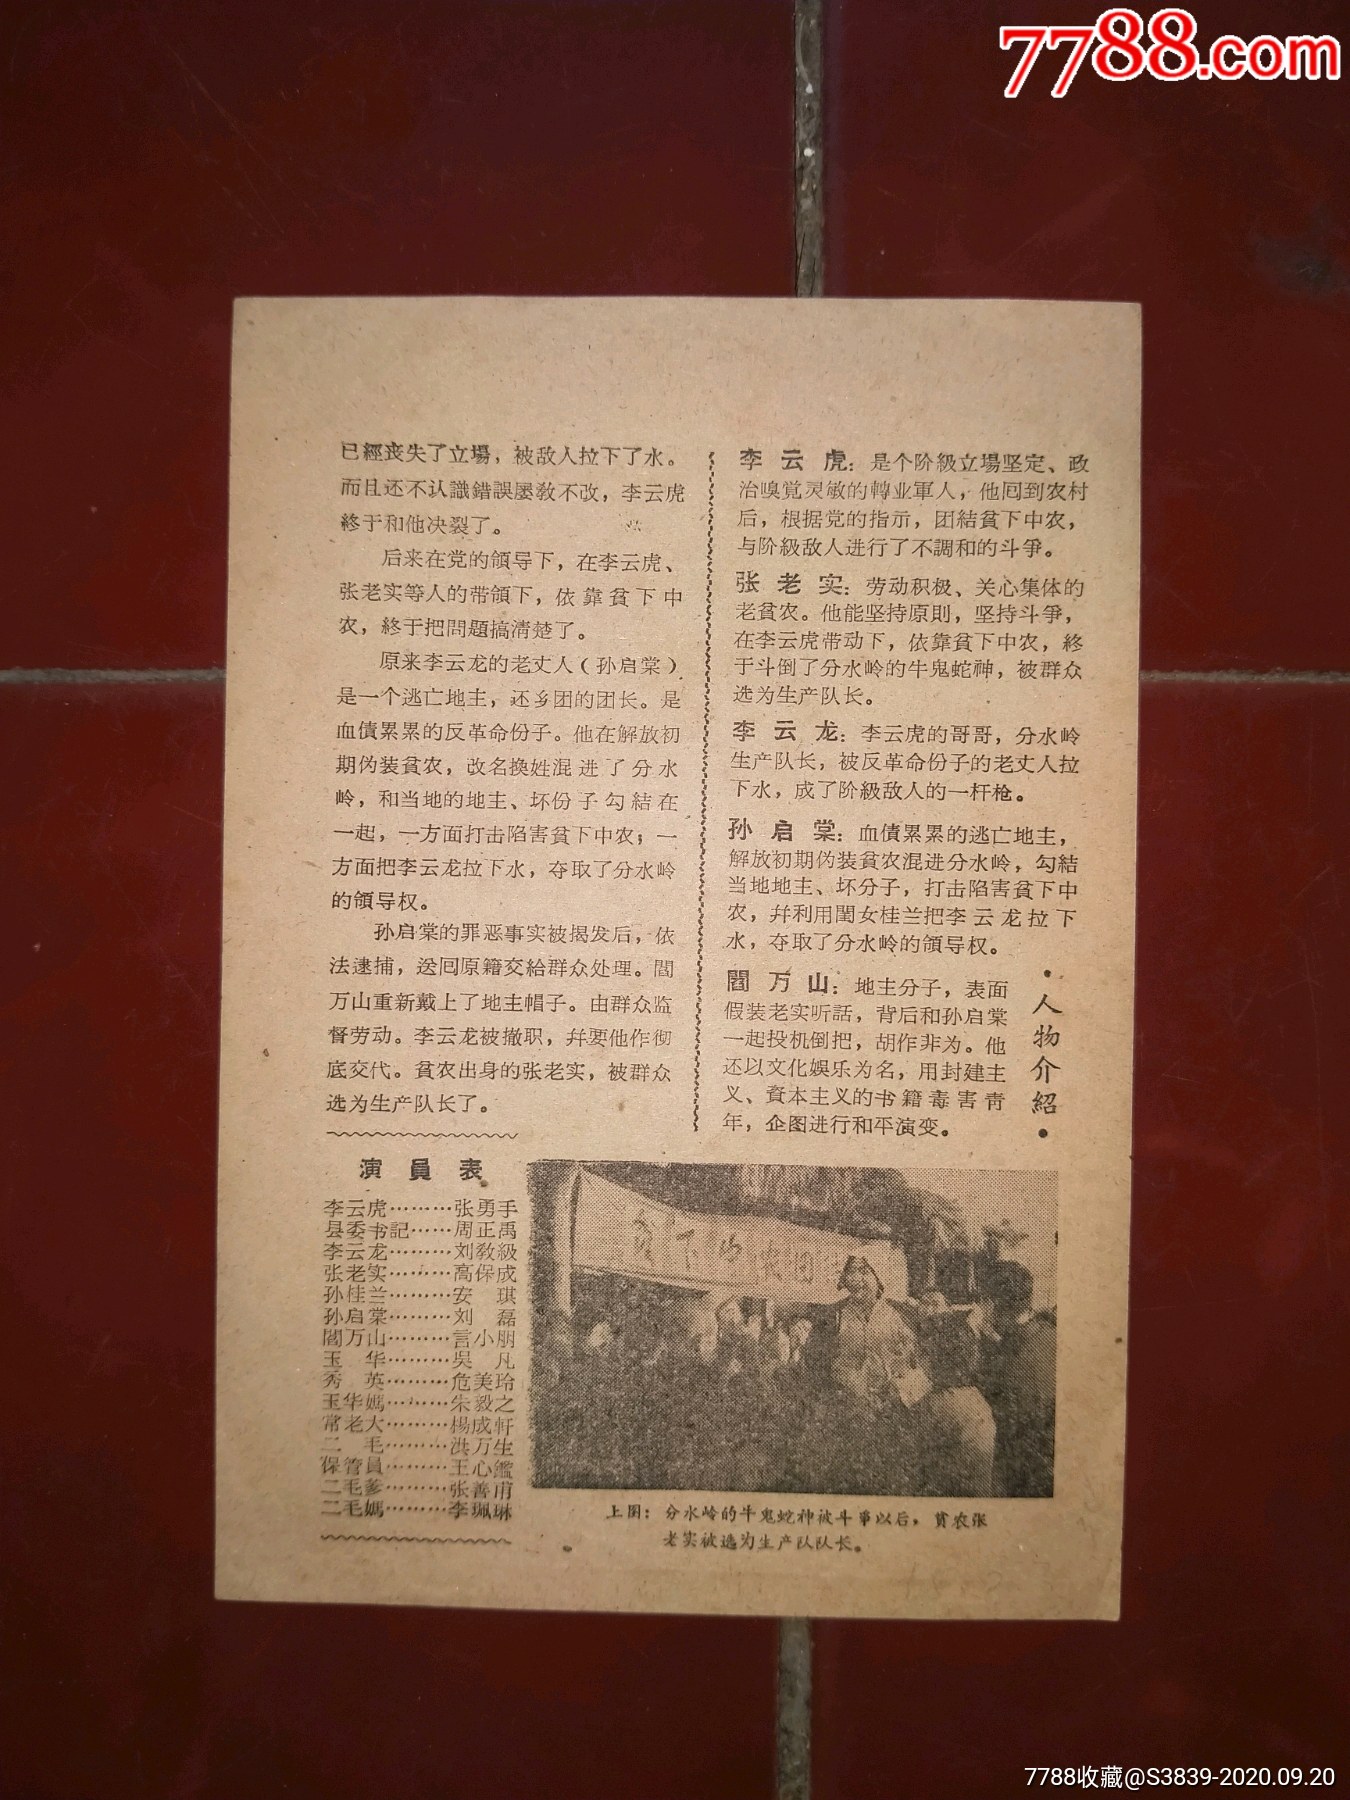 7788.com
已經丧失了立場，被敌人拉下了水。
而且还不认識錯誤屡教不改，李云虎
終于和他决裂了。
后来在党的領导下，在李云虎、
张老实等人的带領下，依靠貧下中
农，終于把問題搞清楚了。
原来李云龙的老丈人（孙启棠）
是一个逃亡地主，还乡团的团长。是
血債累累的反革命份子。他在解放初
期伪装貧农，改名换姓混进了分水
岭，和当地的地主、坏份子勾結在
一起，一方面打击陷害貧下中农；一
方面把李云龙拉下水，夺取了分水岭
的領导权。
孙启棠的罪恶事实被揭发后，依
法逮捕，送回原籍交給群众处理。閻
万山重新戴上了地主帽子。由群众监
督劳动。李云龙被撤职，幷要他作彻
底交代。貧农出身的张老实，被群众
选为生产队长了。
李云虎：是个阶級立場坚定、政
治嗅觉灵敏的轉业軍人，他回到农村
后，根据党的指示，团結貧下中农，
与阶級敌人进行了不調和的斗爭。
张老实：劳动积极、关心集体的
老貧农。他能坚持原則，坚持斗爭，
在李云虎带动下，依靠貧下中农，終
于斗倒了分水岭的牛鬼蛇神，被群众
选为生产队长。
李云龙：李云虎的哥哥，分水岭
生产队长，被反革命份子的老丈人拉
下水，成了阶級敌人的一杆枪。
孙启棠：血債累累的逃亡地主，
解放初期伪装貧农混进分水岭，勾結
当地地主、坏分子，打击陷害貧下中
农，幷利用閨女桂兰把李云龙拉下
水，夺取了分水岭的領导权。
閻万山：地主分子，表面
假装老实听話，背后和孙启棠
一起投机倒把，胡作非为。他
还以文化娱乐为名，用封建主
义、資本主义的书籍毒害青
年，企图进行和平演变。
·人物介紹·
演員表
李云虎………张勇手
县委书記……周正禹
李云龙………刘敎級
张老实………高保成
孙桂兰………安　琪
孙启棠………刘　磊
閻万山………言小朋
玉　华………吳　凡
秀　英………危美玲
玉华媽………朱毅之
常老大………楊成軒
二　毛………洪万生
保管員………王心鑑
二毛爹………张善甫
二毛媽………李珮琳
上图：分水岭的牛鬼蛇神被斗爭以后，貧农张
老实被选为生产队队长。
7788收藏@S3839-2020.09.20